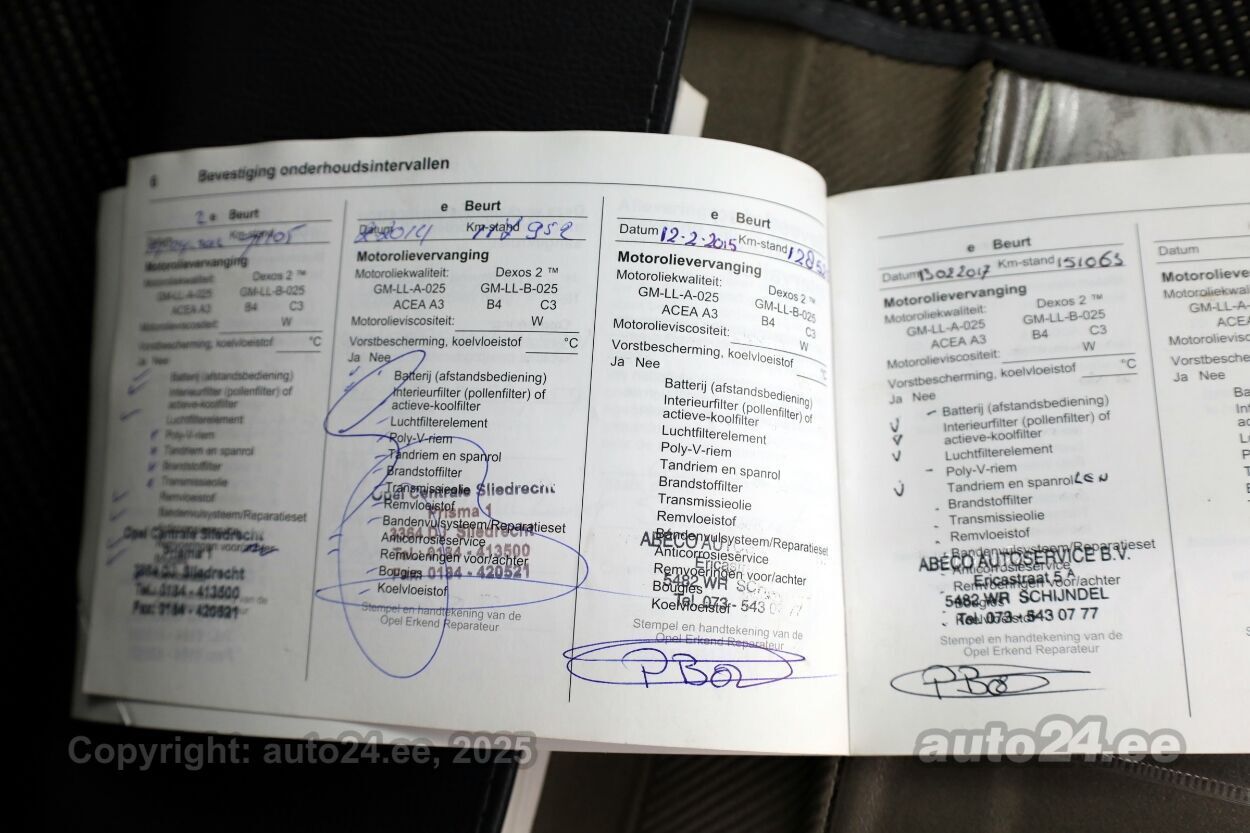 6 Bevestiging onderhoudsintervallen
2 e Beurt
Km-stand
Motorolievervanging
Motoroliekwaliteit: Dexos 2 ™
GM-LL-A-025 GM-LL-B-025
ACEA A3 B4 C3
Motorolieviscositeit: W
Vorstbescherming, koelvloeistof °C
Ja Nee
Batterij (afstandsbediening)
Interieurfilter (pollenfilter) of
actieve-koolfilter
Luchtfilterelement
Poly-V-riem
Tandriem en spanrol
Brandstoffilter
Transmissieolie
Remvloeistof
Bandenvulsysteem/Reparatieset
Opel Centrale Sliedrecht
Prisma 1
3364 DJ Sliedrecht
Tel.: 0184 - 413500
Fax: 0184 - 420521
e Beurt
Datum 2014 Km-stand 952
Motorolievervanging
Motoroliekwaliteit: Dexos 2 ™
GM-LL-A-025 GM-LL-B-025
ACEA A3 B4 C3
Motorolieviscositeit: W
Vorstbescherming, koelvloeistof °C
Ja Nee
Batterij (afstandsbediening)
Interieurfilter (pollenfilter) of
actieve-koolfilter
Luchtfilterelement
Poly-V-riem
Tandriem en spanrol
Brandstoffilter
Transmissieolie
Opel Centrale Sliedrecht
Remvloeistof
Prisma 1
Bandenvulsysteem/Reparatieset
3364 DJ Sliedrecht
Anticorrosieservice
Remvoeringen voor/achter
0184 - 413500
Bougies
0184 - 420521
Koelvloeistof
Stempel en handtekening van de
Opel Erkend Reparateur
e Beurt
Datum 12-2-2015 Km-stand
Motorolievervanging
Motoroliekwaliteit: Dexos 2 ™
GM-LL-A-025 GM-LL-B-025
ACEA A3 B4 C3
Motorolieviscositeit: W
Vorstbescherming, koelvloeistof °C
Ja Nee
Batterij (afstandsbediening)
Interieurfilter (pollenfilter) of
actieve-koolfilter
Luchtfilterelement
Poly-V-riem
Tandriem en spanrol
Brandstoffilter
Transmissieolie
Remvloeistof
Bandenvulsysteem/Reparatieset
ABECO
Anticorrosieservice
Remvoeringen voor/achter
5482 WR
Bougies
Tel. 073 - 543 0 77
Koelvloeistof
Stempel en handtekening van de
Opel Erkend Reparateur
PBos
e Beurt
Datum 13022017 Km-stand 151065
Motorolievervanging
Motoroliekwaliteit: Dexos 2 ™
GM-LL-A-025 GM-LL-B-025
ACEA A3 B4 C3
Motorolieviscositeit: W
Vorstbescherming, koelvloeistof °C
Ja Nee
Batterij (afstandsbediening)
Interieurfilter (pollenfilter) of
actieve-koolfilter
Luchtfilterelement
Poly-V-riem
Tandriem en spanrol
Brandstoffilter
Transmissieolie
Remvloeistof
Bandenvulsysteem/Reparatieset
ABECO AUTOSERVICE B.V.
Anticorrosieservice
Ericastraat 5 A
Remvoeringen voor/achter
5482 WR SCHIJNDEL
Bougies
Tel. 073 - 543 07 77
Koelvloeistof
Stempel en handtekening van de
Opel Erkend Reparateur
PBos
Datum
Motorolieve
Motoroliekwal
GM-LL-A
ACEA
Motorolievis
Vorstbesche
Ja Nee
Copyright: auto24.ee, 2025
auto24.ee